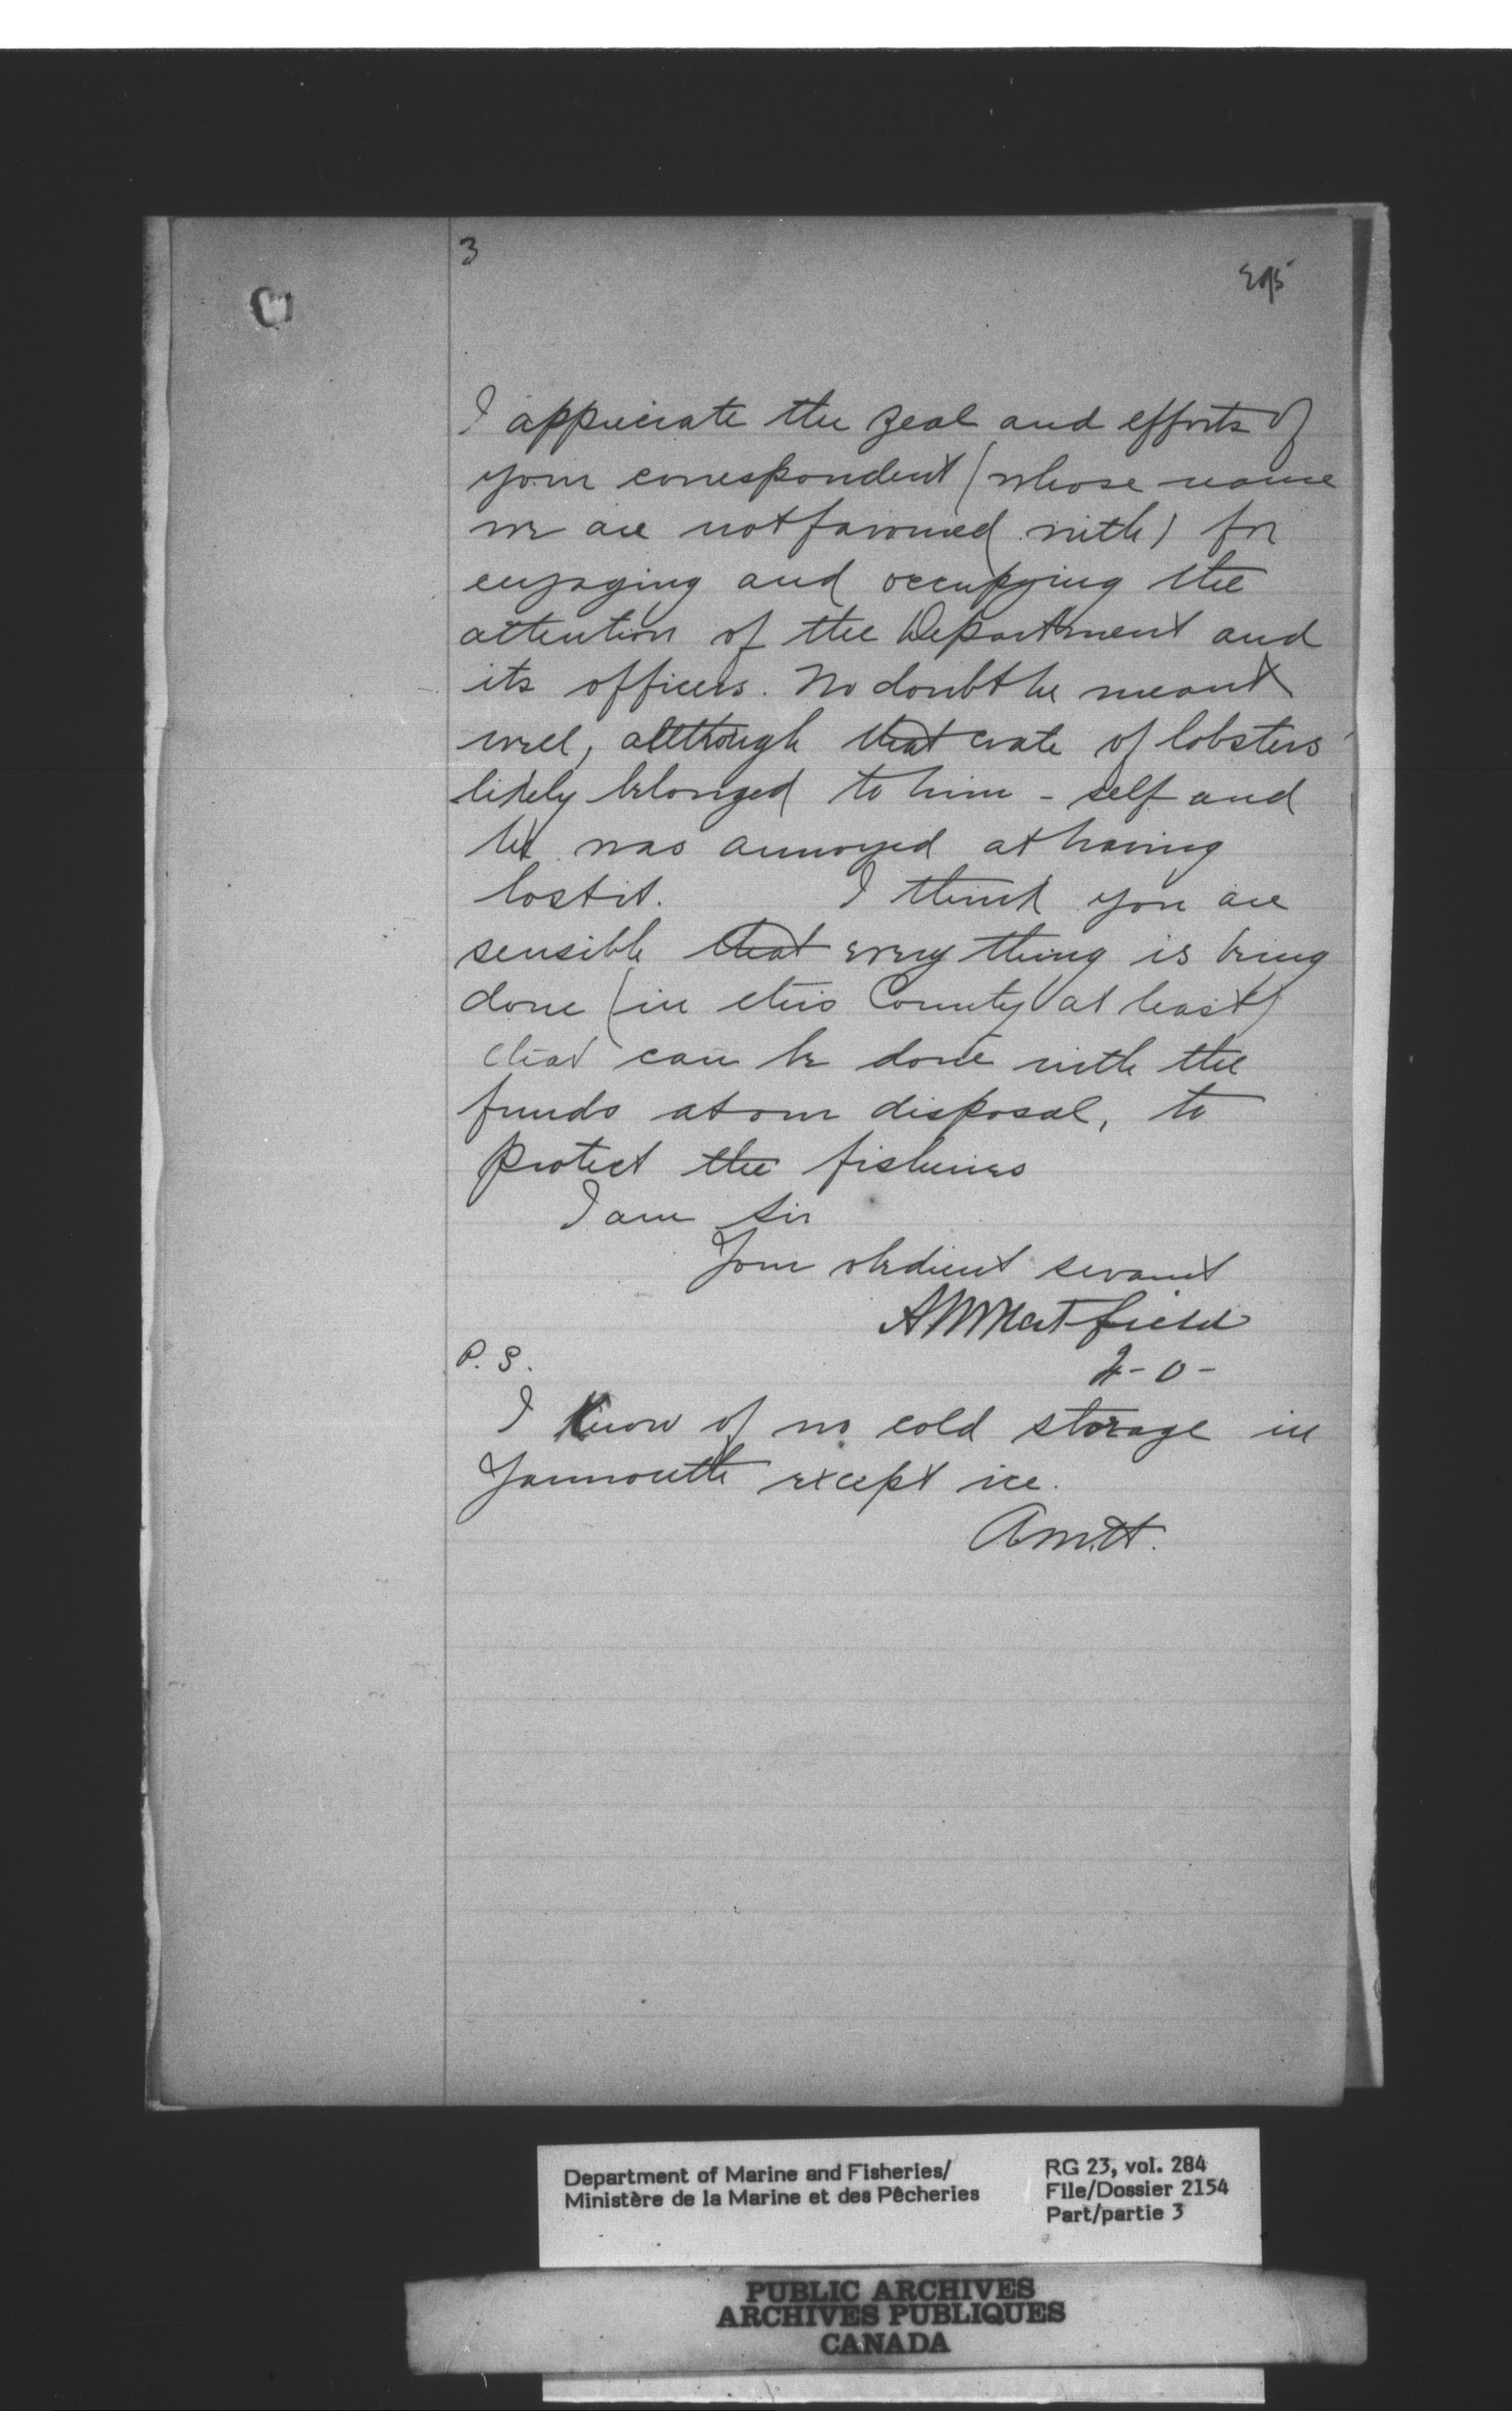 3
I appreciate the zeal and efforts of
your correspondent (whose name
we are not favoured with) for
engaging and occupying the
attention of the Department and
its officers. No doubt he meant
well, although that crate of lobsters
likely belonged to him - self and
he was annoyed at having
lost it. I think you are
sensible that every thing is being
done (in this County at least)
that can be done with the
funds at our disposal, to
protect the fisheries
I am Sir
Your obedient servant
A M Hatfield
P. S.
I know of no cold storage in
Yarmouth except ice.
A.M.H.
Department of Marine and Fisheries/
Ministère de la Marine et des Pêcheries
RG 23, vol. 284
File/Dossier 2154
Part/partie 3
PUBLIC ARCHIVES
ARCHIVES PUBLIQUES
CANADA